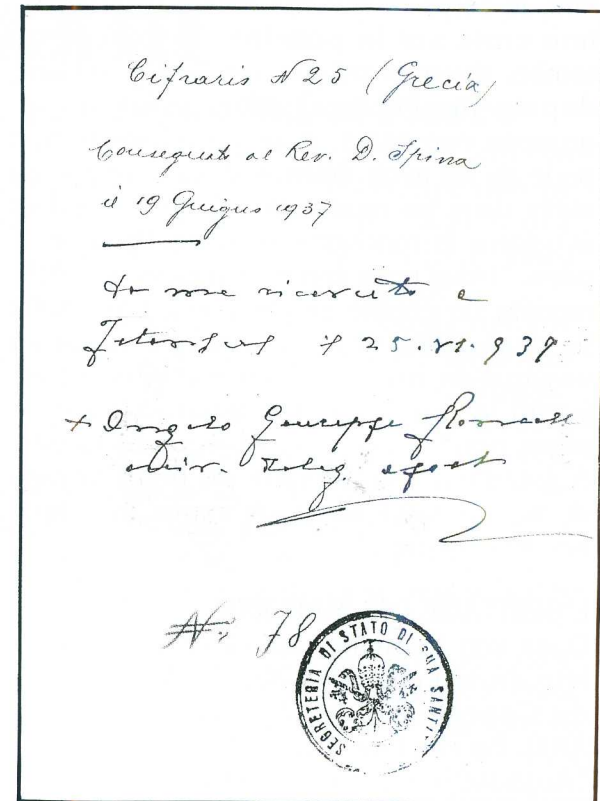 Cifrario N 25 (Grecia)
Consegnato al Rev. D. Spina
il 19 Giugno 1937
da me ricevuto a
Istanbul il 25. VI. 937
+ Angelo Giuseppe Roncalli
arciv. Deleg. apost
N: 78
SEGRETERIA DI STATO DI SUA SANTI